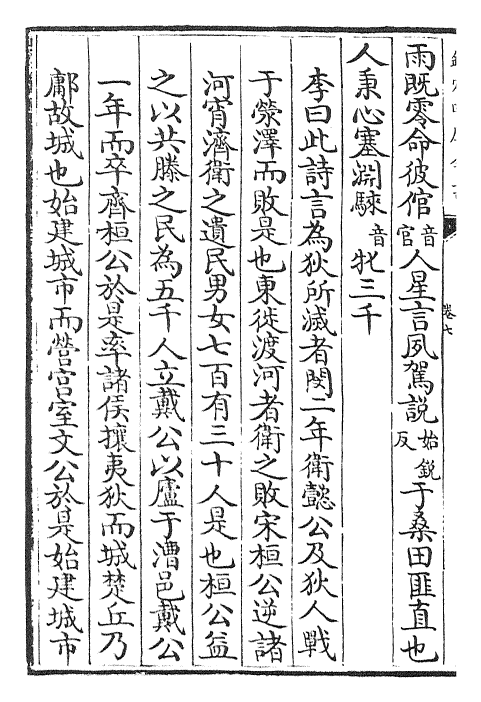 雨既零命彼倌音官人星言夙駕說始銳反于桑田匪直也
人秉心塞淵騋音牝三千
李曰此詩言為狄所滅者閔二年衛懿公及狄人戰
于滎澤而敗是也東徙渡河者衛之敗宋桓公逆諸
河宵濟衛之遺民男女七百有三十人是也桓公益
之以共滕之民為五千人立戴公以廬于漕邑戴公
一年而卒齊桓公於是率諸侯攘夷狄而城楚丘乃
鄘故城也始建城市而營宮室文公於是始建城市
卷七